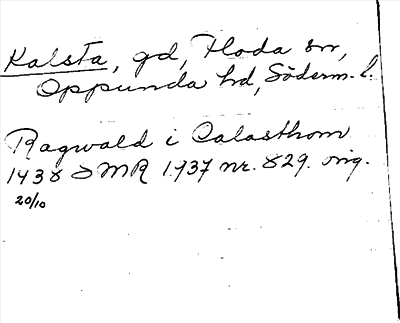 Kalsta, gd, Floda sn,
Oppunda hd, Söderm. l.
Ragwald i Calasthom
1438 DMR 1937 nr. 829. orig.
20/10